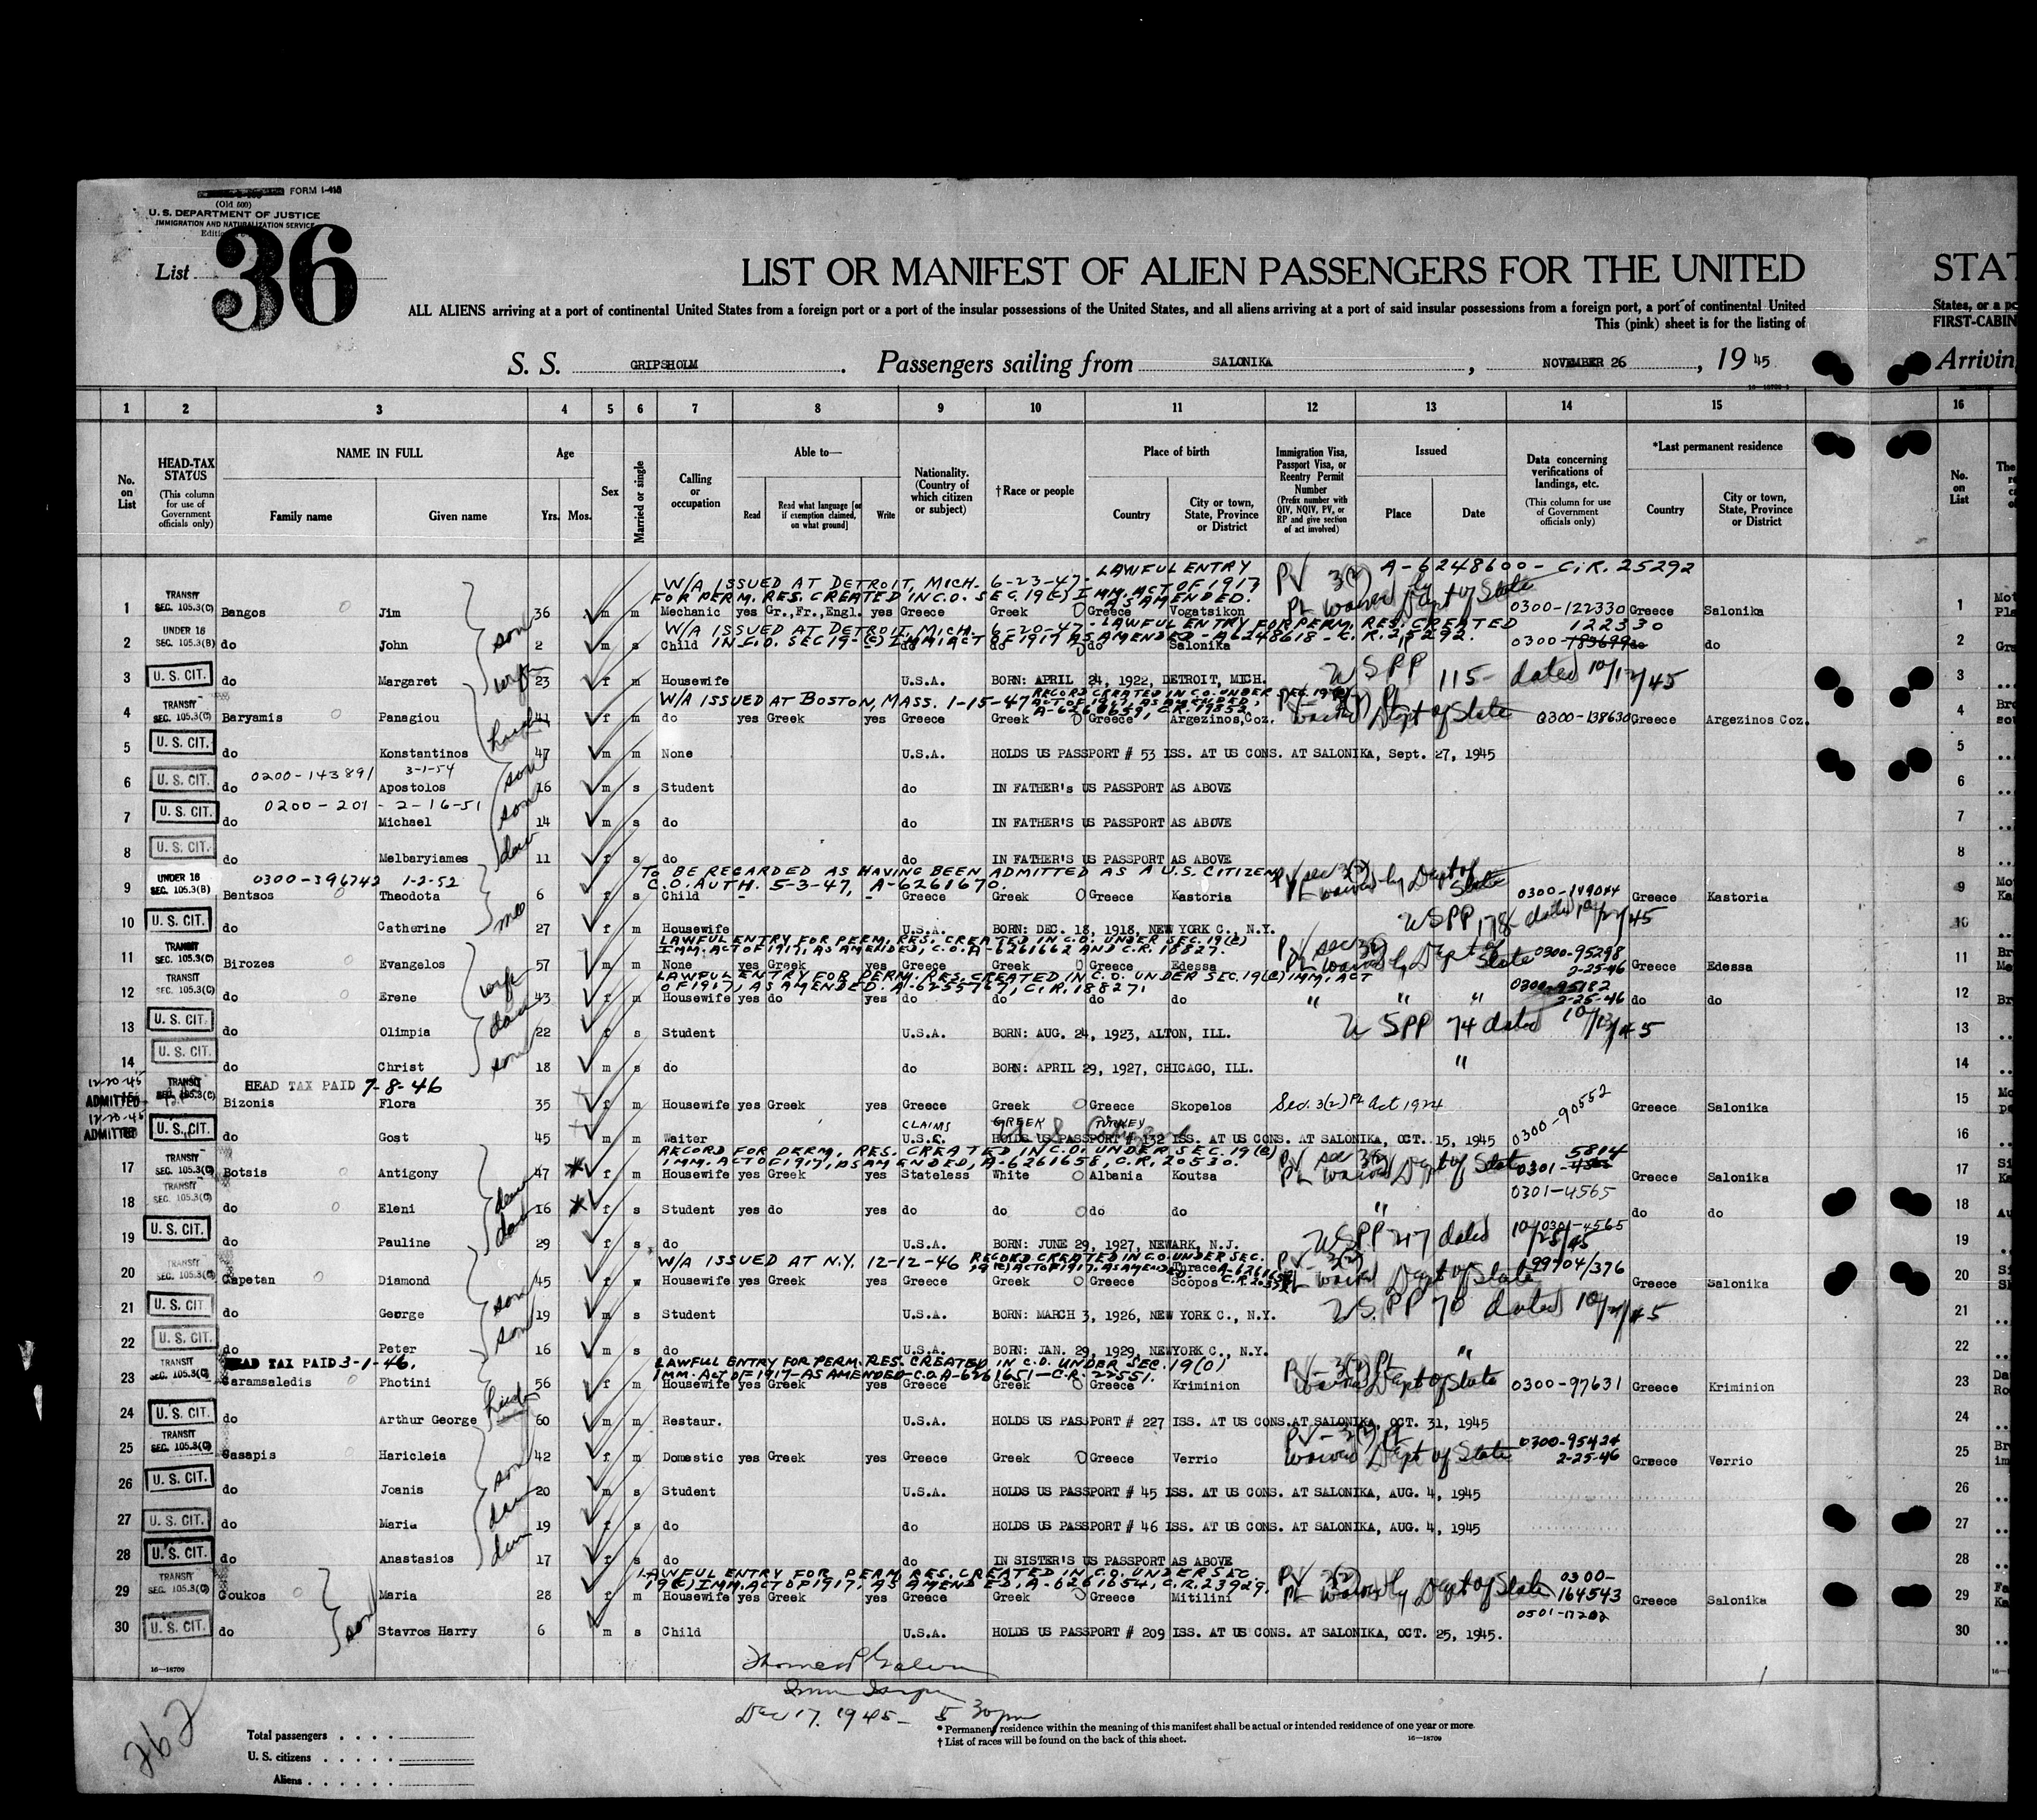 FORM I-415
(Old 500)
U. S. DEPARTMENT OF JUSTICE
IMMIGRATION AND NATURALIZATION SERVICE
List 36
LIST OR MANIFEST OF ALIEN PASSENGERS FOR THE UNITED STAT
ALL ALIENS arriving at a port of continental United States from a foreign port or a port of the insular possessions of the United States, and all aliens arriving at a port of said insular possessions from a foreign port, a port of continental United States, or a po
This (pink) sheet is for the listing of FIRST-CABIN
S. S. GRIPSHOLM. Passengers sailing from SALONIKA, NOVEMBER 26, 1945 Arrivin
1 2 3 4 5 6 7 8 9 10 11 12 13 14 15 16
No. on List HEAD-TAX STATUS (This column for use of Government officials only) NAME IN FULL Family name Given name Age Yrs. Mos. Sex Married or single Calling or occupation Able to— Read Read what language [or if exemption claimed, on what ground] Write Nationality. (Country of which citizen or subject) †Race or people Place of birth Country City or town, State, Province or District Immigration Visa, Passport Visa, or Reentry Permit Number (Prefix number with QIV, NQIV, PV, or RP and give section of act involved) Issued Place Date Data concerning verifications of landings, etc. (This column for use of Government officials only) *Last permanent residence Country City or town, State, Province or District No. on List
W/A ISSUED AT DETROIT, MICH. 6-23-47- LAWFUL ENTRY PV 3(2) A-6248600- C.R. 25292
FOR PERM. RES. CREATED IN C.O. SEC. 19(c) IMM. ACT OF 1917 AS AMENDED. PL waived by Dept of State
1 TRANSIT SEC. 105.3(C) Bangos Jim 36 m m Mechanic yes Gr.,Fr.,Engl. yes Greece Greek Greece Vogatsikon 0300-122330 Greece Salonika 1
W/A ISSUED AT DETROIT, MICH. 6-20-47- LAWFUL ENTRY FOR PERM. RES. CREATED 122330
IN C.O. SEC 19(c) IMM ACT OF 1917 AS AMENDED - A6248618 - C.R. 25292.
2 UNDER 16 SEC. 105.3(B) do John son 2 m s Child do do do Salonika 0300-183699 do do 2
3 U. S. CIT. do Margaret wife 23 f m Housewife U.S.A. BORN: APRIL 24, 1922, DETROIT, MICH. USPP 115- dated 10/12/45 3
W/A ISSUED AT BOSTON, MASS. 1-15-47 RECORD CREATED IN C.O. UNDER SEC. 19(c) ACT OF 1917, AS AMENDED,
4 TRANSIT SEC. 105.3(C) Baryamis Panagiou 41 f m do yes Greek yes Greece Greek Greece Argezinos,Coz. waived Dept of State 0300-138630 Greece Argezinos Coz. 4
5 U. S. CIT. do Konstantinos 47 m m None U.S.A. HOLDS US PASSPORT # 53 ISS. AT US CONS. AT SALONIKA, Sept. 27, 1945 5
0200-143891 3-1-54
6 U. S. CIT. do Apostolos son 16 m s Student do IN FATHER's US PASSPORT AS ABOVE 6
0200-201 - 2-16-51
7 U. S. CIT. do Michael son 14 m s do do IN FATHER'S US PASSPORT AS ABOVE 7
8 U. S. CIT. do Melbaryiames dau 11 f s do do IN FATHER'S US PASSPORT AS ABOVE 8
0300-396742 1-2-52 TO BE REGARDED AS HAVING BEEN ADMITTED AS A U.S. CITIZEN
C.O. AUTH. 5-3-47, A-6261670. PV sec 3(2) PL waived by Dept of State
9 UNDER 16 SEC. 105.3(B) Bentsos Theodota 6 f s Child - - Greece Greek Greece Kastoria 0300-149044 Greece Kastoria 9
10 U. S. CIT. do Catherine mo 27 f m Housewife U.S.A. BORN: DEC. 18, 1918, NEW YORK C., N.Y. USPP 178 dated 45 10
LAWFUL ENTRY FOR PERM. RES. CREATED IN C.O. UNDER SEC. 19(c)
IMM. ACT OF 1917, AS AMENDED, C.O. A-6261662 AND C.R. 18827.
11 TRANSIT SEC. 105.3(C) Birozes Evangelos 57 m m None yes Greek yes Greece Greek Greece Edessa waived by Dept of State 0300-95298 2-25-46 Greece Edessa 11
LAWFUL ENTRY FOR PERM. RES. CREATED IN C.O. UNDER SEC. 19(c) IMM. ACT
OF 1917, AS AMENDED. A-6255767, C.R. 18827.
12 TRANSIT SEC. 105.3(C) do Erene wife 43 f m Housewife yes do yes do do do do " " " 0300-95182 2-25-46 do do 12
13 U. S. CIT. do Olimpia dau 22 f s Student U.S.A. BORN: AUG. 24, 1923, ALTON, ILL. USPP 74 dated 10/13/45 13
14 U. S. CIT. do Christ son 18 m s do do BORN: APRIL 29, 1927, CHICAGO, ILL. " 14
12-20-45 ADMITTED HEAD TAX PAID 7-8-46
15 TRANSIT SEC. 105.3(C) Bizonis Flora 35 f m Housewife yes Greek yes Greece Greek Greece Skopelos Sec. 3(2) Act 1924 0300-90552 Greece Salonika 15
12-20-45 ADMITTED CLAIMS GREEK TURKEY
16 U. S. CIT. do Gost 45 m m Waiter U.S.C. HOLDS US PASSPORT # 132 ISS. AT US CONS. AT SALONIKA, OCT. 15, 1945 16
RECORD FOR PERM. RES. CREATED IN C.O. UNDER SEC. 19(c)
IMM. ACT OF 1917, AS AMENDED, A-6261658, C.R. 20530. 5814
17 TRANSIT SEC. 105.3(C) Botsis Antigony 47 f m Housewife yes Greek yes Stateless White Albania Koutsa waived Dept of State 0301- Greece Salonika 17
18 TRANSIT SEC. 105.3(C) do Eleni 16 f s Student yes do yes do do do do " 0301-4565 do do 18
19 U. S. CIT. do Pauline dau 29 f s do U.S.A. BORN: JUNE 29, 1927, NEWARK, N.J. USPP 217 dated 10/25/45 0301-4565 19
W/A ISSUED AT N.Y. 12-12-46 RECORD CREATED IN C.O. UNDER SEC. 19(c) ACT OF 1917, AS AMENDED
20 TRANSIT SEC. 105.3(C) Capetan Diamond 45 f w Housewife yes Greek yes Greece Greek Greece Turace Scopos waived Dept of State 99704/376 Greece Salonika 20
21 U. S. CIT. do George son 19 m s Student U.S.A. BORN: MARCH 3, 1926, NEW YORK C., N.Y. USPP 70 dated 45 21
22 U. S. CIT. do Peter son 16 m s do U.S.A. BORN: JAN. 29, 1929, NEWYORK C., N.Y. " 22
HEAD TAX PAID 3-1-46. LAWFUL ENTRY FOR PERM. RES. CREATED IN C.O. UNDER SEC. 19(c)
IMM. ACT OF 1917-AS AMENDED-C.O. A-6261651-C.R. 22551.
23 TRANSIT SEC. 105.3(C) Caramsaledis Photini 56 f m Housewife yes Greek yes Greece Greek Greece Kriminion waived Dept of State 0300-97631 Greece Kriminion 23
24 U. S. CIT. do Arthur George 60 m m Restaur. U.S.A. HOLDS US PASSPORT # 227 ISS. AT US CONS.AT SALONIKA, OCT. 31, 1945 24
25 TRANSIT SEC. 105.3(C) Casapis Haricleia 42 f m Domestic yes Greek yes Greece Greek Greece Verrio PV-3(2) PL waived Dept of State 0300-95424 2-25-46 Greece Verrio 25
26 U. S. CIT. do Joanis son 20 m s Student U.S.A. HOLDS US PASSPORT # 45 ISS. AT US CONS. AT SALONIKA, AUG. 4, 1945 26
27 U. S. CIT. do Maria dau 19 f s do do HOLDS US PASSPORT # 46 ISS. AT US CONS. AT SALONIKA, AUG. 4, 1945 27
28 U. S. CIT. do Anastasios dau 17 f s do do IN SISTER'S US PASSPORT AS ABOVE 28
LAWFUL ENTRY FOR PERM. RES. CREATED IN C.O. UNDER SEC.
19(c) IMM. ACT OF 1917, AS AMENDED, A-6261654, C.R. 23929.
29 TRANSIT SEC. 105.3(C) Coukos Maria 28 f m Housewife yes Greek yes Greece Greek Greece Mitilini PV 3(2) PL waived by Dept of State 0300-164543 Greece Salonika 29
0501-17202
30 U. S. CIT. do Stavros Harry son 6 m s Child U.S.A. HOLDS US PASSPORT # 209 ISS. AT US CONS. AT SALONIKA, OCT. 25, 1945. 30
16—18709
Dec 17. 1945- 5 30pm
262
Total passengers
U. S. citizens
Aliens
* Permanent residence within the meaning of this manifest shall be actual or intended residence of one year or more.
† List of races will be found on the back of this sheet.
16—18709